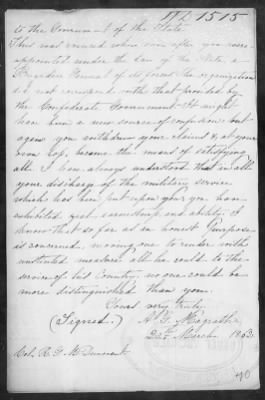 to the Government of the State.
Thus was occured when even after you were
appointed under the Law of the State, a
Brigadier General of its forces the organization
did not correspond with that provided by
the Confederate Government It might
have been a new source of confusion but
again you withdrew your claims & at your
own loss, became the means of satisfying
all I have always understood that in all
your discharge of the military service
which has been put upon you you have
exhibited zeal earnestness and ability I
know that so far as an honest purpose
is concerned, moving one to render with
unstinted measure all he could to the
service of his Country, no one could be
more distinguished than you.
Yours very truly
(Signed) A. G. Magrath
March 1863.
Col. R. G. M.